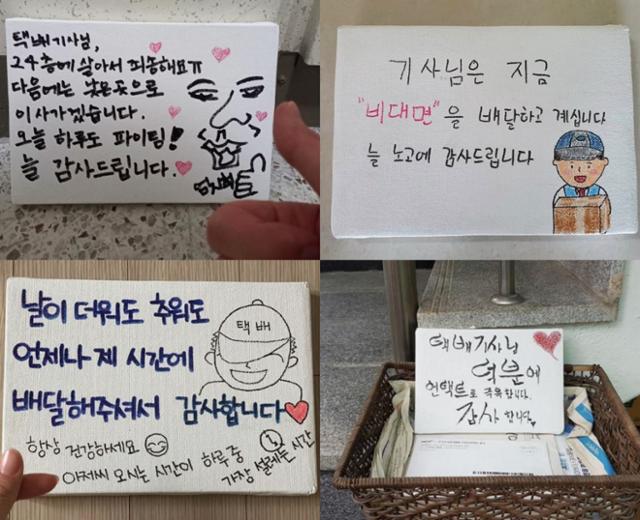 택배기사님,
24층에 살아서 죄송해요ㅠ
다음에는 낮은곳으로
이사가겠습니다.
오늘 하루도 파이팅!
늘 감사드립니다.
기사님은 지금
"비대면"을 배달하고 계십니다
늘 노고에 감사드립니다
날이 더워도 추워도
택배
언제나 제 시간에
배달해주셔서 감사합니다
항상 건강하세요
아저씨 오시는 시간이 하루중
가장 설레는 시간
택배기사님
덕분에
언택트로 극복합니다.
감사합니다.